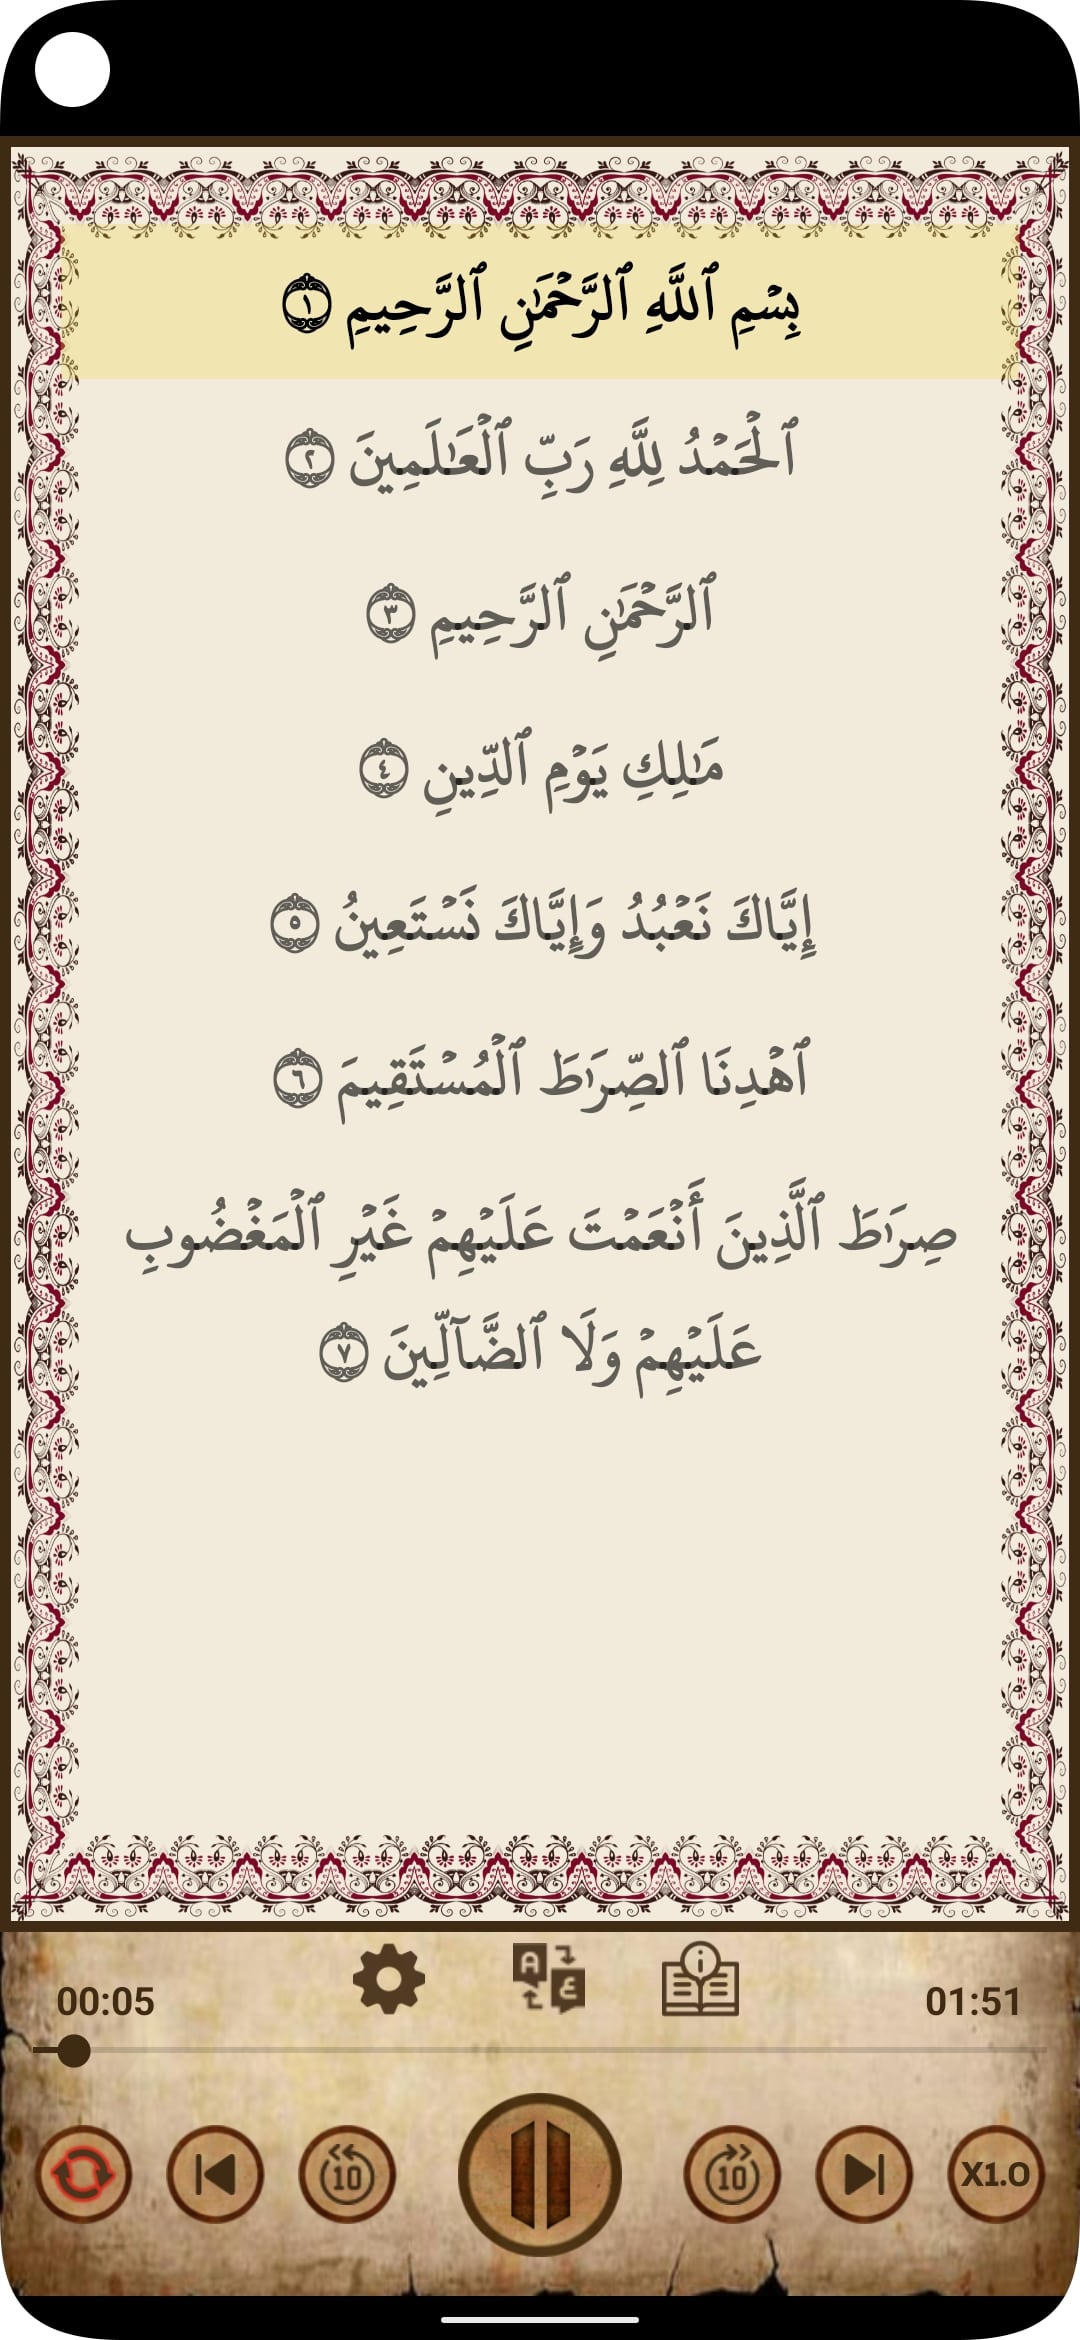 بِسْمِ ٱللَّهِ ٱلرَّحْمَٰنِ ٱلرَّحِيمِ ١
ٱلْحَمْدُ لِلَّهِ رَبِّ ٱلْعَٰلَمِينَ ٢
ٱلرَّحْمَٰنِ ٱلرَّحِيمِ ٣
مَٰلِكِ يَوْمِ ٱلدِّينِ ٤
إِيَّاكَ نَعْبُدُ وَإِيَّاكَ نَسْتَعِينُ ٥
ٱهْدِنَا ٱلصِّرَٰطَ ٱلْمُسْتَقِيمَ ٦
صِرَٰطَ ٱلَّذِينَ أَنْعَمْتَ عَلَيْهِمْ غَيْرِ ٱلْمَغْضُوبِ
عَلَيْهِمْ وَلَا ٱلضَّآلِّينَ ٧
A ع
i
00:05 01:51
10 10 X1.0